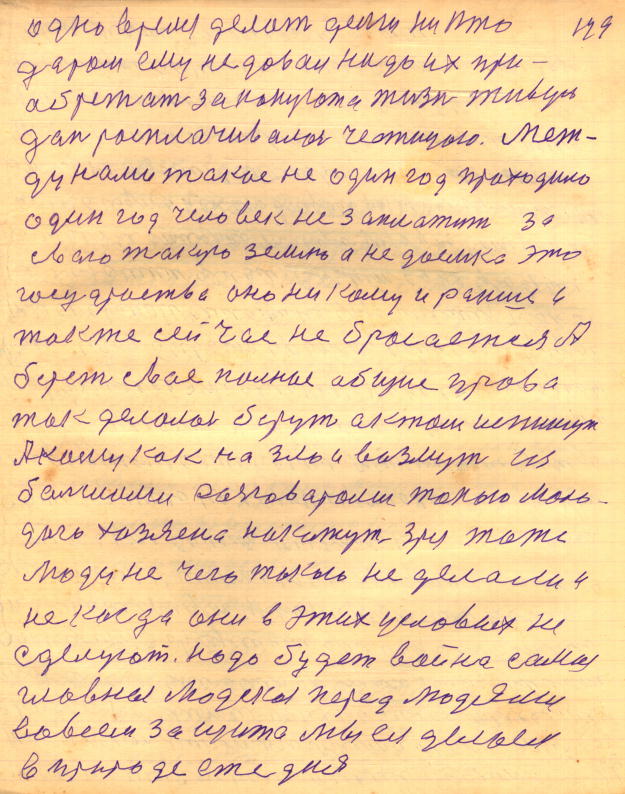 одно время делат дети никто 179
даром ему не довал надо их при-
абретат за копута жизн живут
дап росплачивалоя честицою. Меж-
ду нами такое не один год проходило
один год человек не заплатит за
сваго такую землю а не доимка это
государства оно никому и ранше и
также сей час не бросается А
берет свае полное общие права
так делолоя берут актом
А кому как на зло и возмут из
балшими разговарами толью моло-
даго хозяена накажут зря тоже
люди не чего такого не делали и
не когда они в этих условиях не
сделуют. надо будет война самая
главная людская перед людями
вовсем защита мысл делаем
в природе еже дня